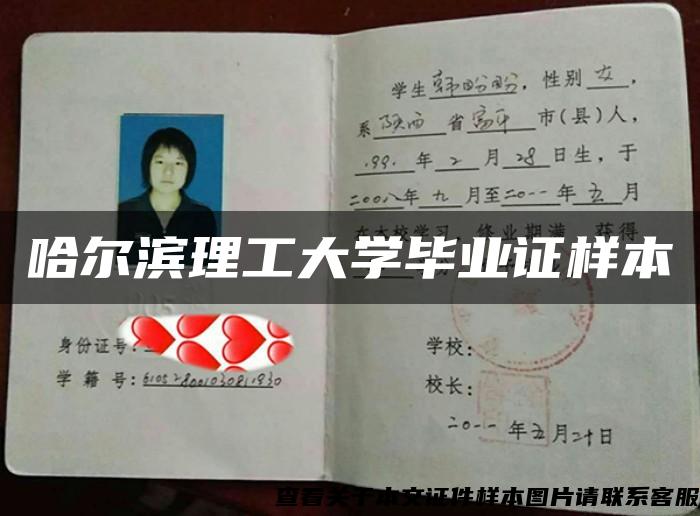 学生韩盼盼，性别女，
系陕西省富平市(县)人，
1991年2月28日生，于
二00八年九月至二0一一年五月
在本校学习，修业期满，获得
哈尔滨理工大学毕业证样本
身份证号:
学籍号:610528001030811930
学校:
校长:
二0一一年五月二十日
查看关于本文证件样本图片请联系客服